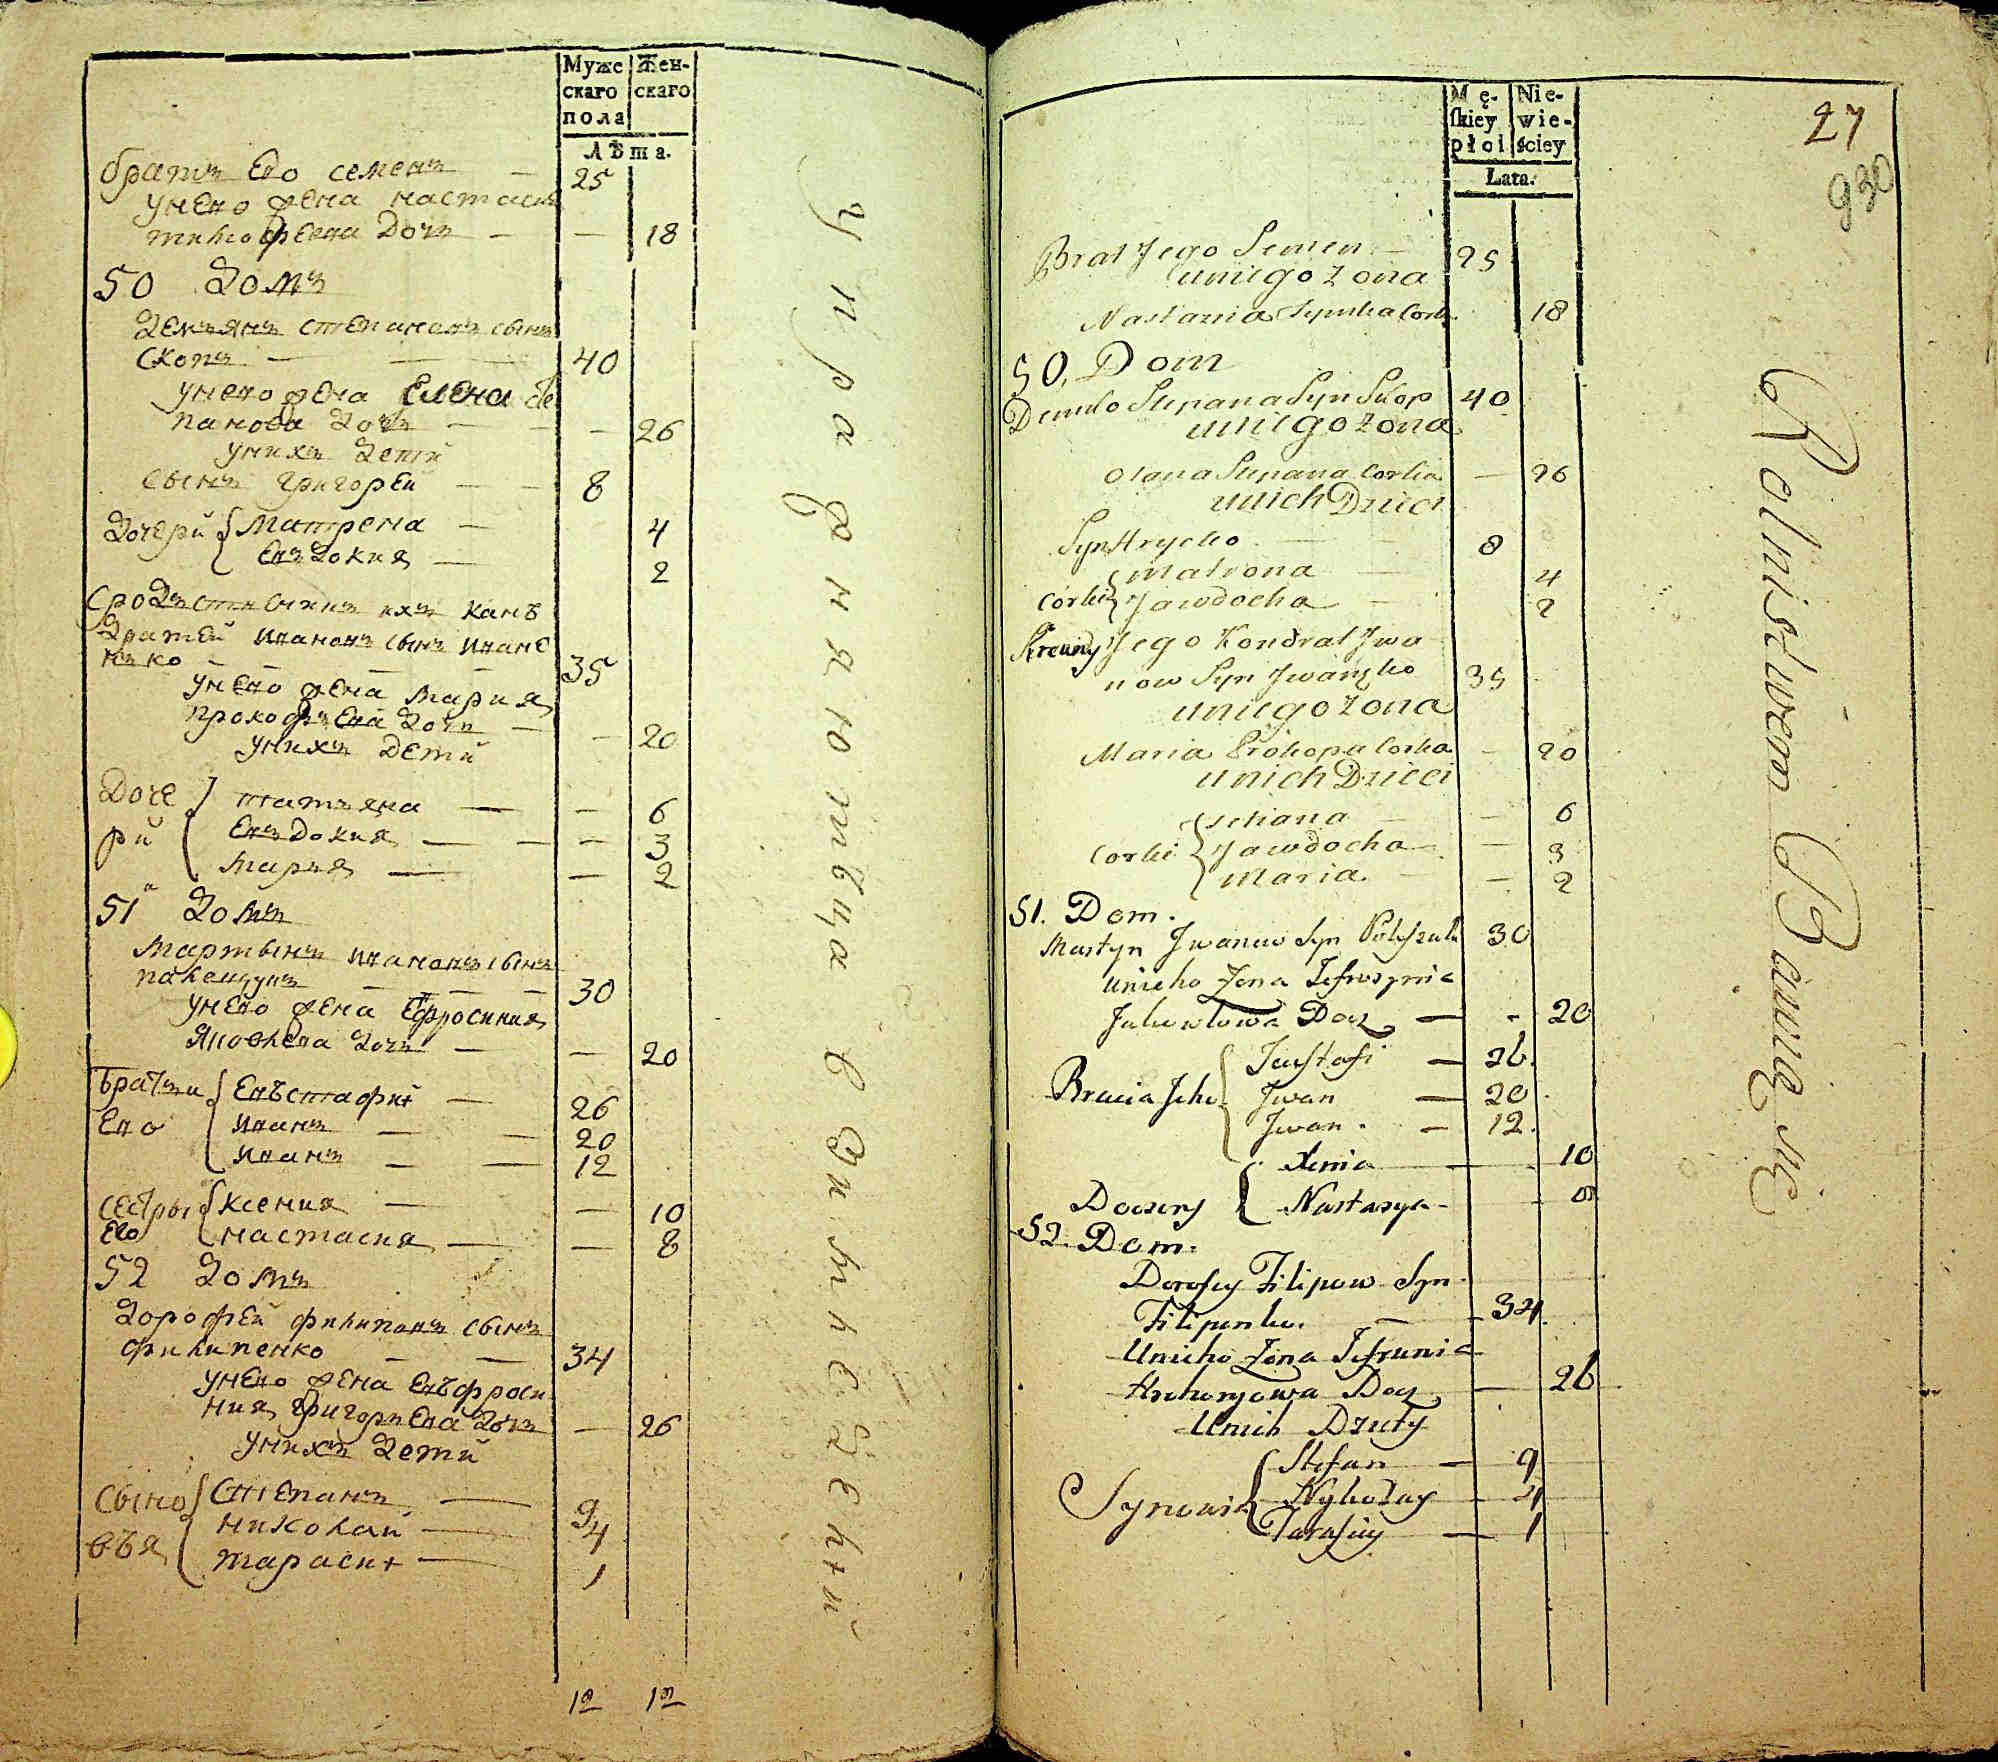 Муже
скаго
пола
Жен-
скаго
Лѣта.
братъ Его семенъ — 25
унего жена настасия
тимофеева Дочь — — 18
50 Домъ
Демьянъ степановъ сынъ
скопъ — — 40
унего жена Елена сте
панова Дочь — — 26
унихъ Дети
сынъ григорей — — 8
Дочери { Матрена — 4
Евъдокия — 2
сродъственникъ ихъ канъ
Дратей ивановъ сынъ иване
нъко — — — 35
унего жена мария
прокофьева Дочь — — 20
унихъ Дети
Доче
ри
татьяна — — 6
Евъдокия — — — 3
мария — — 2
51 Домъ
мартынъ ивановъ сынъ
— — — 30
унего жена Ефросиния
Яковлева Дочь — — 20
Братьи
Его
Евъстафи — 26
иванъ — — 20
иванъ — — 12
сестры
Его
ксения — — 10
настасия — — 8
52 Домъ
Дорофей филиповъ сынъ
филипенко — — 34
унего жена Евъфроси
ния григорьева Дочь — 26
унихъ Дети
сыно
въя
Степанъ — 9
николай — 4
тараси — 1
12 12
упражняютъца в
Mę-
skiey
płci
Nie-
wie-
ściey
Lata.
27
930
Brat Jego Semen — 25
uniego zona
Nastazia Corka 18
50, Dom
Demko Stepana Syn Skop 40
uniego zona
Olana Stepana Corka — 26
unich Dzieci
Syn Hrycko — — 8
Corki { Matrona — 4
Jawdocha — 2
Krewny Jego Kondrat Jwa
now Syn Jwanzko 35
uniego zona
Maria Prokopa Corka — 20
unich Dzieci
Corki { Tetiana — — 6
Jawdocha — — 3
Maria. — — 2
51. Dom.
Martyn Jwanow Syn 30
unieho Zona Jefrosynia
Jakowlowa Docz — - 20
Bracia Jeho { Jewstafi — 26.
Jwan — 20
Jwan. — 12.
Xenia — 10
Nastazya — 8
52. Dom.
Dorofey Filipow Syn
Filipenko. — 34
Unieho Zona Jefrunia
Docz — 26
Unich Dziety
Synowie { Stefan — 9
Nykołay — 4
Tarasiy — 1
Rolnictwem Bawią się